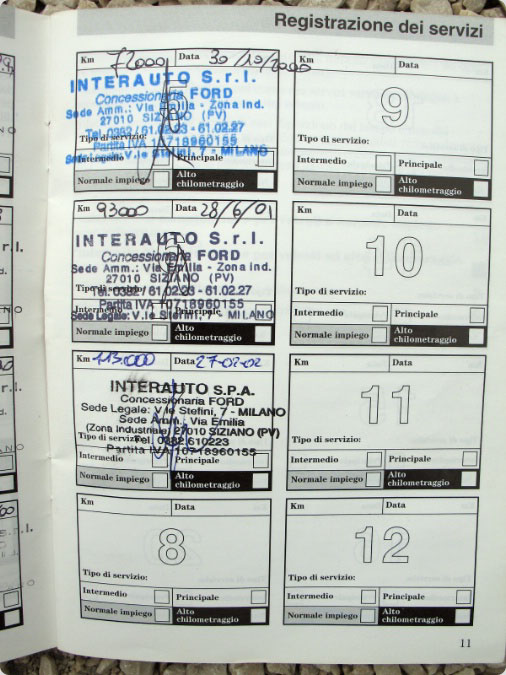 Registrazione dei servizi
Km 72000 Data 30/10/2000
INTERAUTO S.r.l.
Concessionaria FORD
Sede Amm.: Via Emilia - Zona Ind.
27010 SIZIANO (PV)
Tel. 0382/61.02.23 - 61.02.27
Partita IVA 10718960155
Sede Legale: V.le Stefini, 7 - MILANO
Tipo di servizio:
Intermedio Principale
Normale impiego Alto chilometraggio
Km 93000 Data 28/6/01
INTERAUTO S.r.l.
Concessionaria FORD
Sede Amm.: Via Emilia - Zona ind.
27010 SIZIANO (PV)
Tel. 0382/61.02.23 - 61.02.27
Partita IVA 10718960155
Sede Legale: V.le Stefini, 7 - MILANO
Tipo di servizio:
Intermedio Principale
Normale impiego Alto chilometraggio
Km 113.000 Data 27-02-02
INTERAUTO S.P.A.
Concessionaria FORD
Sede Legale: V.le Stefini, 7 - MILANO
Sede Amm.: Via Emilia
(Zona Industriale) 27010 SIZIANO (PV)
Tel. 0382 610223
Partita IVA 10718960155
Tipo di servizio:
Intermedio Principale
Normale impiego Alto chilometraggio
Km Data
8
Tipo di servizio:
Intermedio Principale
Normale impiego Alto chilometraggio
Km Data
9
Tipo di servizio:
Intermedio Principale
Normale impiego Alto chilometraggio
Km Data
10
Tipo di servizio:
Intermedio Principale
Normale impiego Alto chilometraggio
Km Data
11
Tipo di servizio:
Intermedio Principale
Normale impiego Alto chilometraggio
Km Data
12
Tipo di servizio:
Intermedio Principale
Normale impiego Alto chilometraggio
11